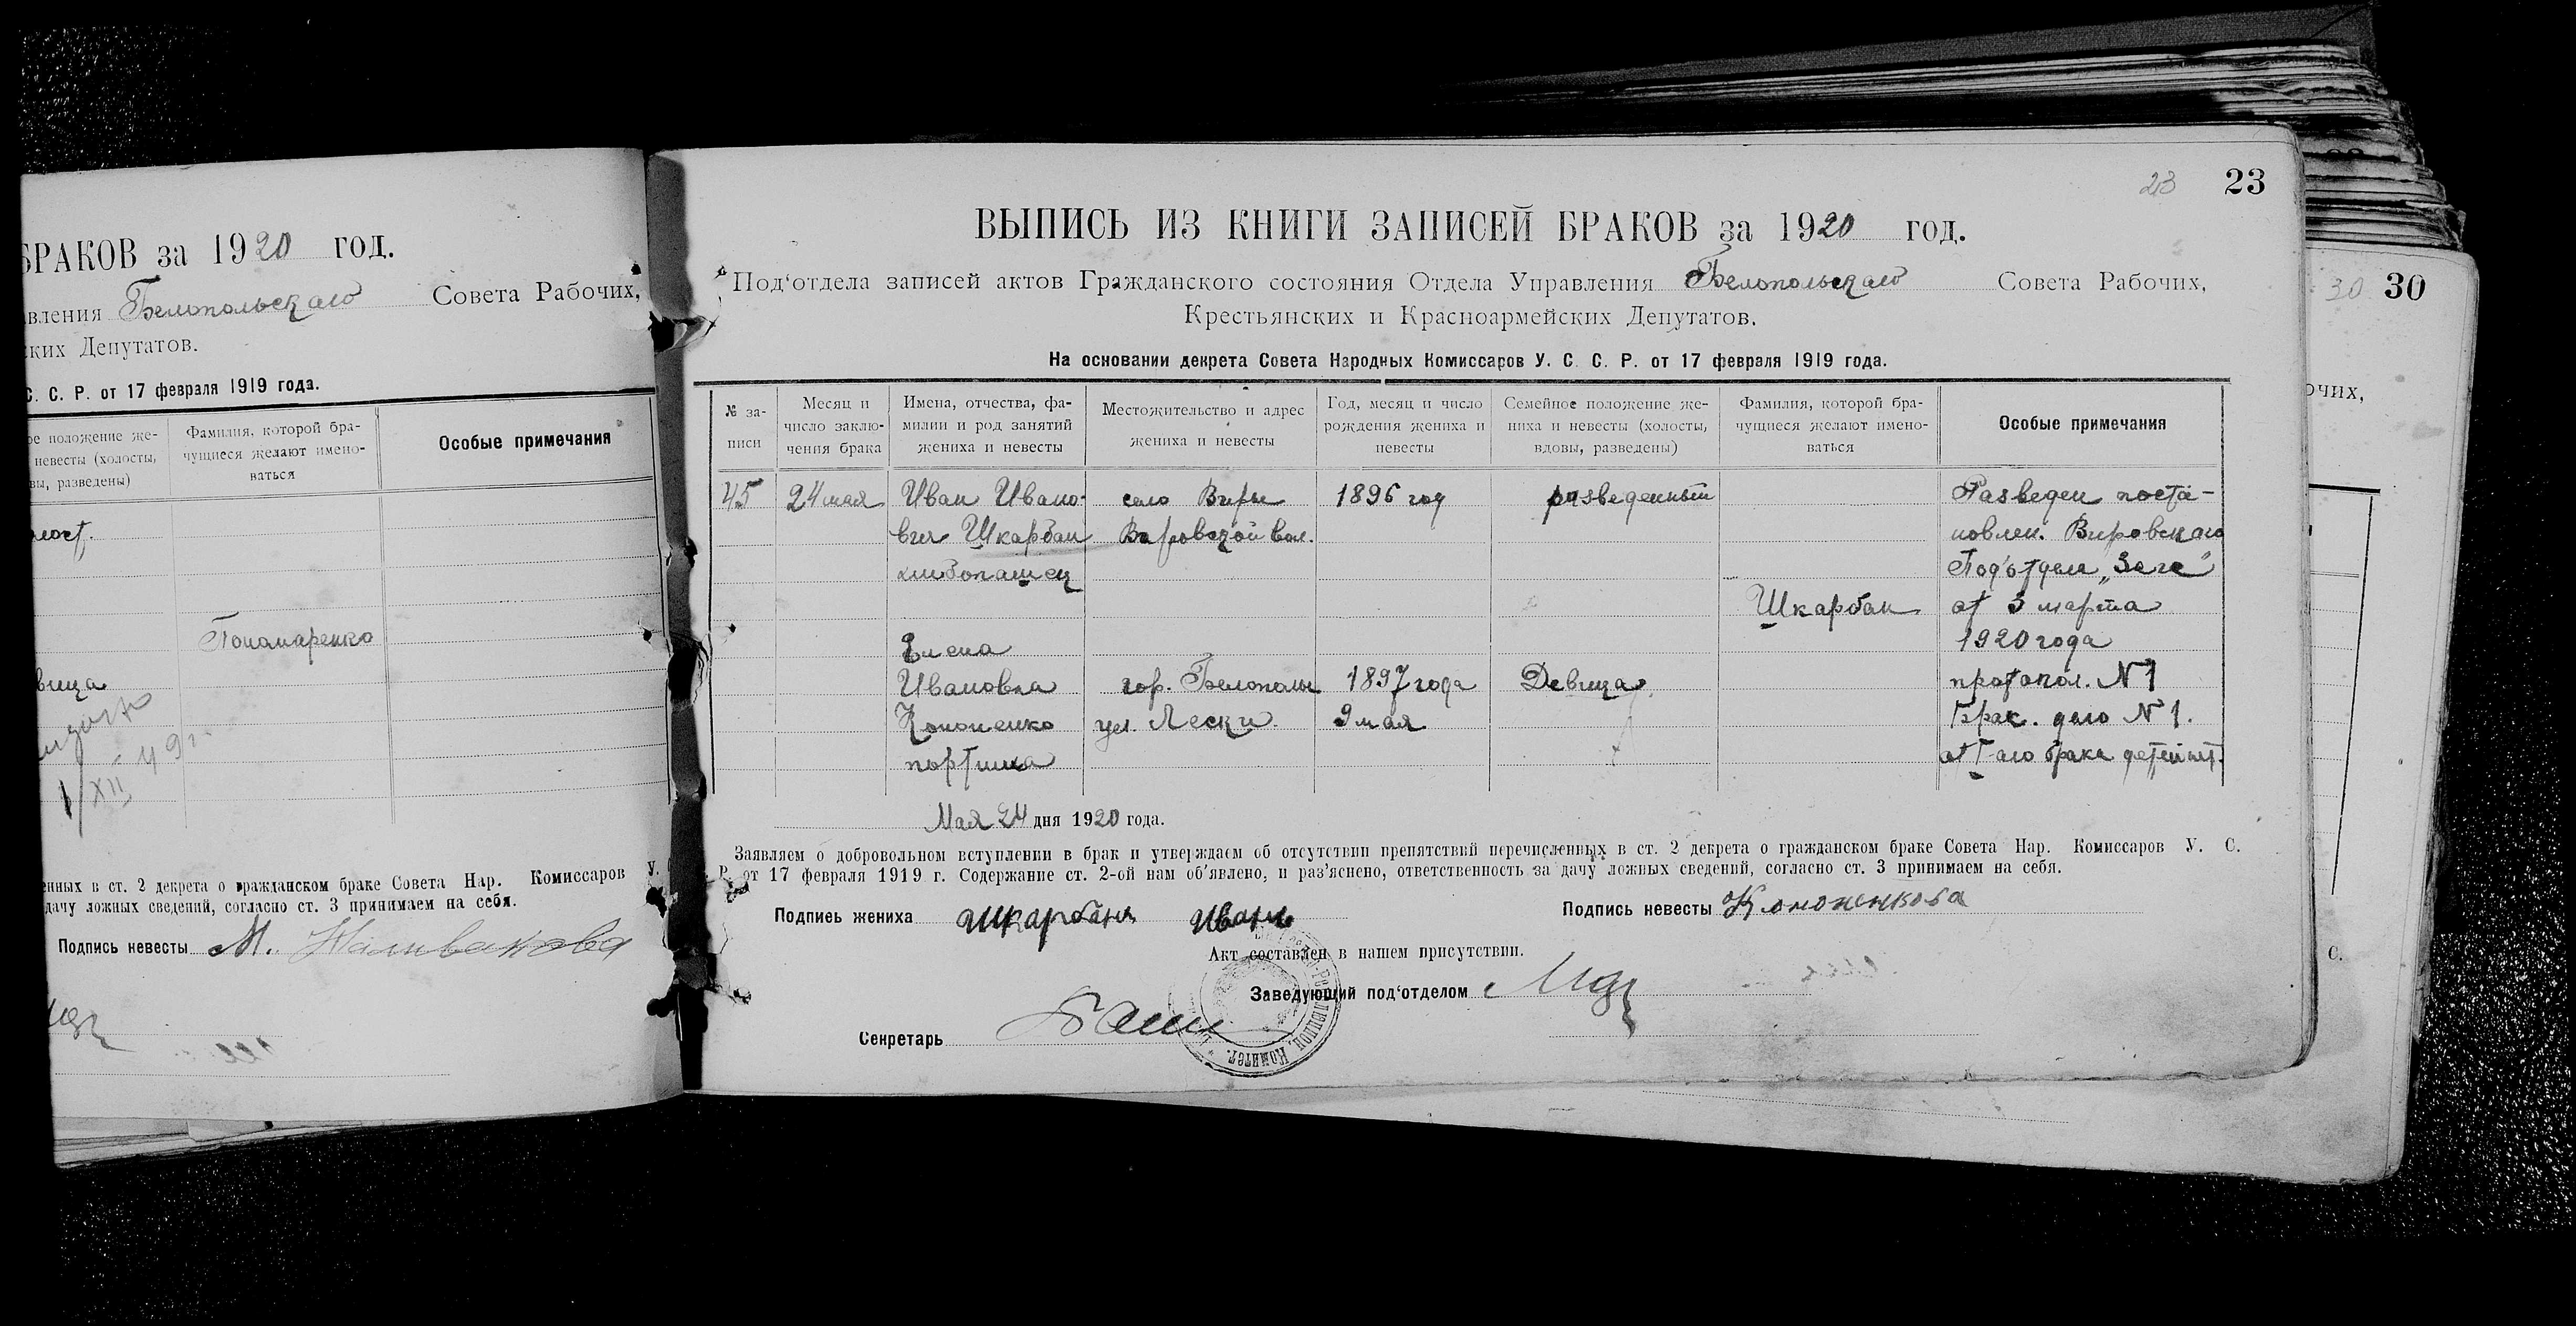 БРАКОВ за 1920 год.
вления Белопольскаго Совета Рабочих,
ских Депутатов.
С. С. Р. от 17 февраля 1919 года.
ое положение же-
невесты (холосты,
вы, разведены)
Фамилия, которой бра-
чущиеся желают имено-
ваться
Особые примечания
лост.
Понамаренко
вица
1/XII - 49 г.
енных в ст. 2 декрета о гражданском браке Совета Нар. Комиссаров У.
дачу ложных сведений, согласно ст. 3 принимаем на себя.
Подпись невесты М.
23 23
ВЫПИСЬ ИЗ КНИГИ ЗАПИСЕЙ БРАКОВ за 1920 год.
Под'отдела записей актов Гражданского состояния Отдела Управления Белопольскаго Совета Рабочих,
Крестьянских и Красноармейских Депутатов.
На основании декрета Совета Народных Комиссаров У. С. С. Р. от 17 февраля 1919 года.
№ за-
писи
Месяц и
число заклю-
чения брака
Имена, отчества, фа-
милии и род занятий
жениха и невесты
Местожительство и адрес
жениха и невесты
Год, месяц и число
рождения жениха и
невесты
Семейное положение же-
ниха и невесты (холосты,
вдовы, разведены)
Фамилия, которой бра-
чущиеся желают имено-
ваться
Особые примечания
45
24 мая
Иван Ивано-
вич Шкарбан
хлибопашец
село Виры
Вировской вол.
1896 год
разведенный
Шкарбан
Елена
Ивановна
Кононенко
портниха
гор. Белополье
ул. Лески
1897 года
9 мая
Девица
Разведен поста-
новлен. Вировскаго
Под'отдела „Загс“
от 3 марта
1920 года
протокол. N 1
Брак. дело N 1.
от 1 аго брака детей нет.
Мая 24 дня 1920 года.
Заявляем о добровольном вступлении в брак и утверждаем об отсутствии препятствий перечисленных в ст. 2 декрета о гражданском браке Совета Нар. Комиссаров У. С.
Р. от 17 февраля 1919 г. Содержание ст. 2-ой нам об'явлено, и раз'яснено, ответственность за дачу ложных сведений, согласно ст. 3 принимаем на себя.
Подпись жениха Шкарбань Иванъ
Подпись невесты Кононенкова
Акт составлен в нашем присутствии.
Заведующий под'отделом
Секретарь
Комитет.
30 30
очих,
С.